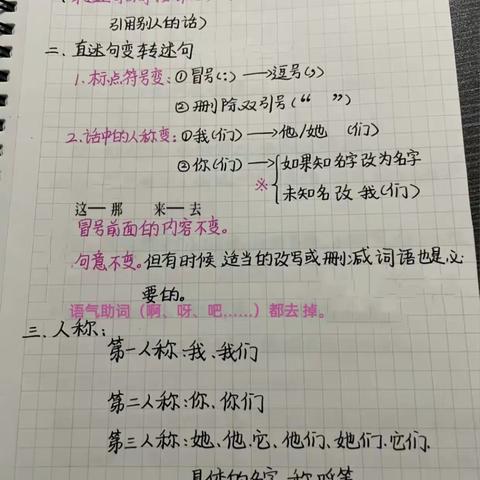 引用别人的话)
二、直述句变转述句
1.标点符号变:①冒号(:)→逗号(,)
②删除双引号(“ ”)
2.话中的人称变:①我(们)→他/她 (们)
②你(们)→如果知名字改为名字
※ 未知名改 我(们)
这一那 来一去
冒号前面的内容不变。
句意不变。但有时候适当的改写或删减词语也是必
要的。
语气助词(啊、呀、吧……)都去掉。
三、人称:
第一人称:我、我们
第二人称:你、你们
第三人称:她、他、它、他们、她们、它们.